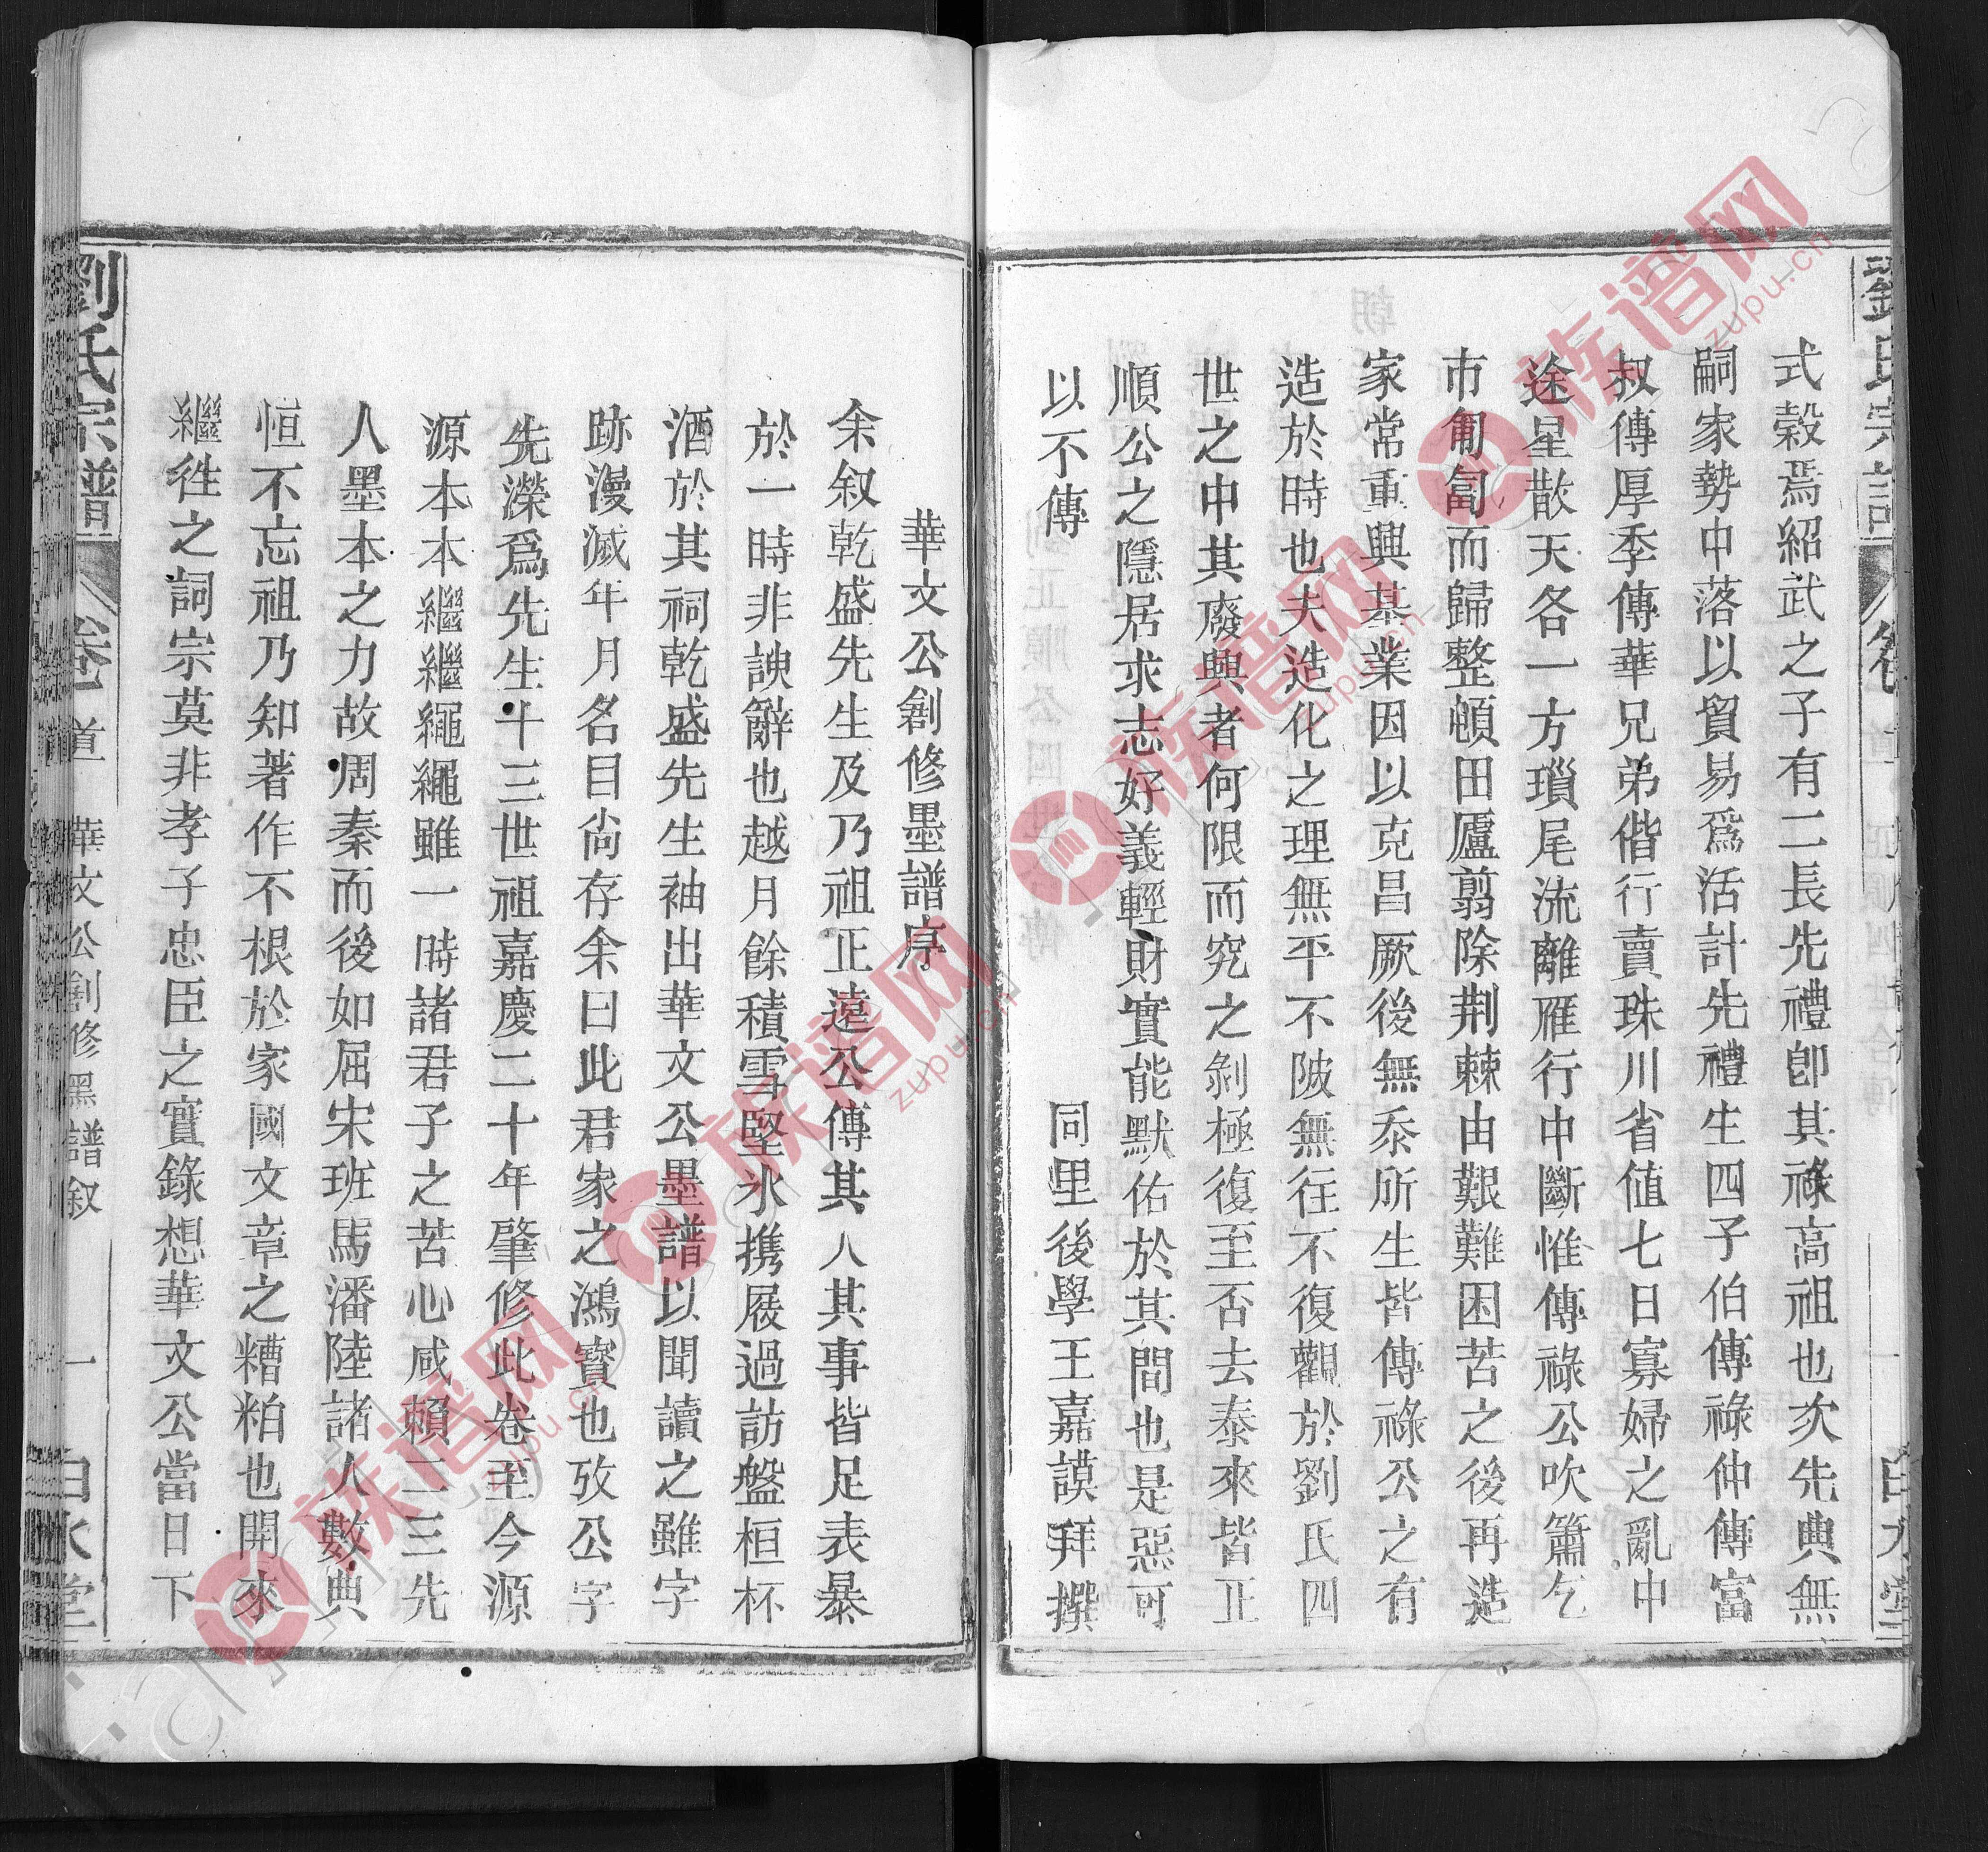 式穀焉紹武之子有二長先禮卽其祿高祖也次先典無
嗣家勢中落以貿易爲活計先禮生四子伯傳祿仲傳富
叔傳厚季傳華兄弟偕行賣珠川省値七日寡婦之亂中
途星散天各一方瑣尾流離雁行中斷惟傳祿公吹簫乞
市匍匐而歸整頓田廬翦除荆棘由艱難困苦之後再造
家常重興基業因以克昌厥後無忝所生皆傳祿公之有
造於時也夫造化之理無平不陂無往不復觀於劉氏四
世之中其廢興者何限而究之剝極復至否去泰來皆正
順公之隱居求志好義輕財實能默佑於其間也是惡可
以不傳
同里後學王嘉謨拜撰
華文公創修墨譜序
余叙乾盛先生及乃祖正遠公傳其人其事皆足表暴
於一時非諛辭也越月餘積雪堅氷携屐過訪盤桓杯
酒於其祠乾盛先生袖出華文公墨譜以聞讀之雖字
跡漫滅年月名目尙存余曰此君家之鴻寶也攷公字
先濚爲先生十三世祖嘉慶二十年肇修此卷至今源
源本本繼繼繩繩雖一時諸君子之苦心咸賴二三先
人墨本之力故周秦而後如屈宋班馬潘陸諸人數典
恒不忘祖乃知著作不根於家國文章之糟粕也開來
繼徃之詞宗莫非孝子忠臣之實錄想華文公當日下
劉氏宗譜
卷一
道
華文公創修墨譜叙
一
白水堂